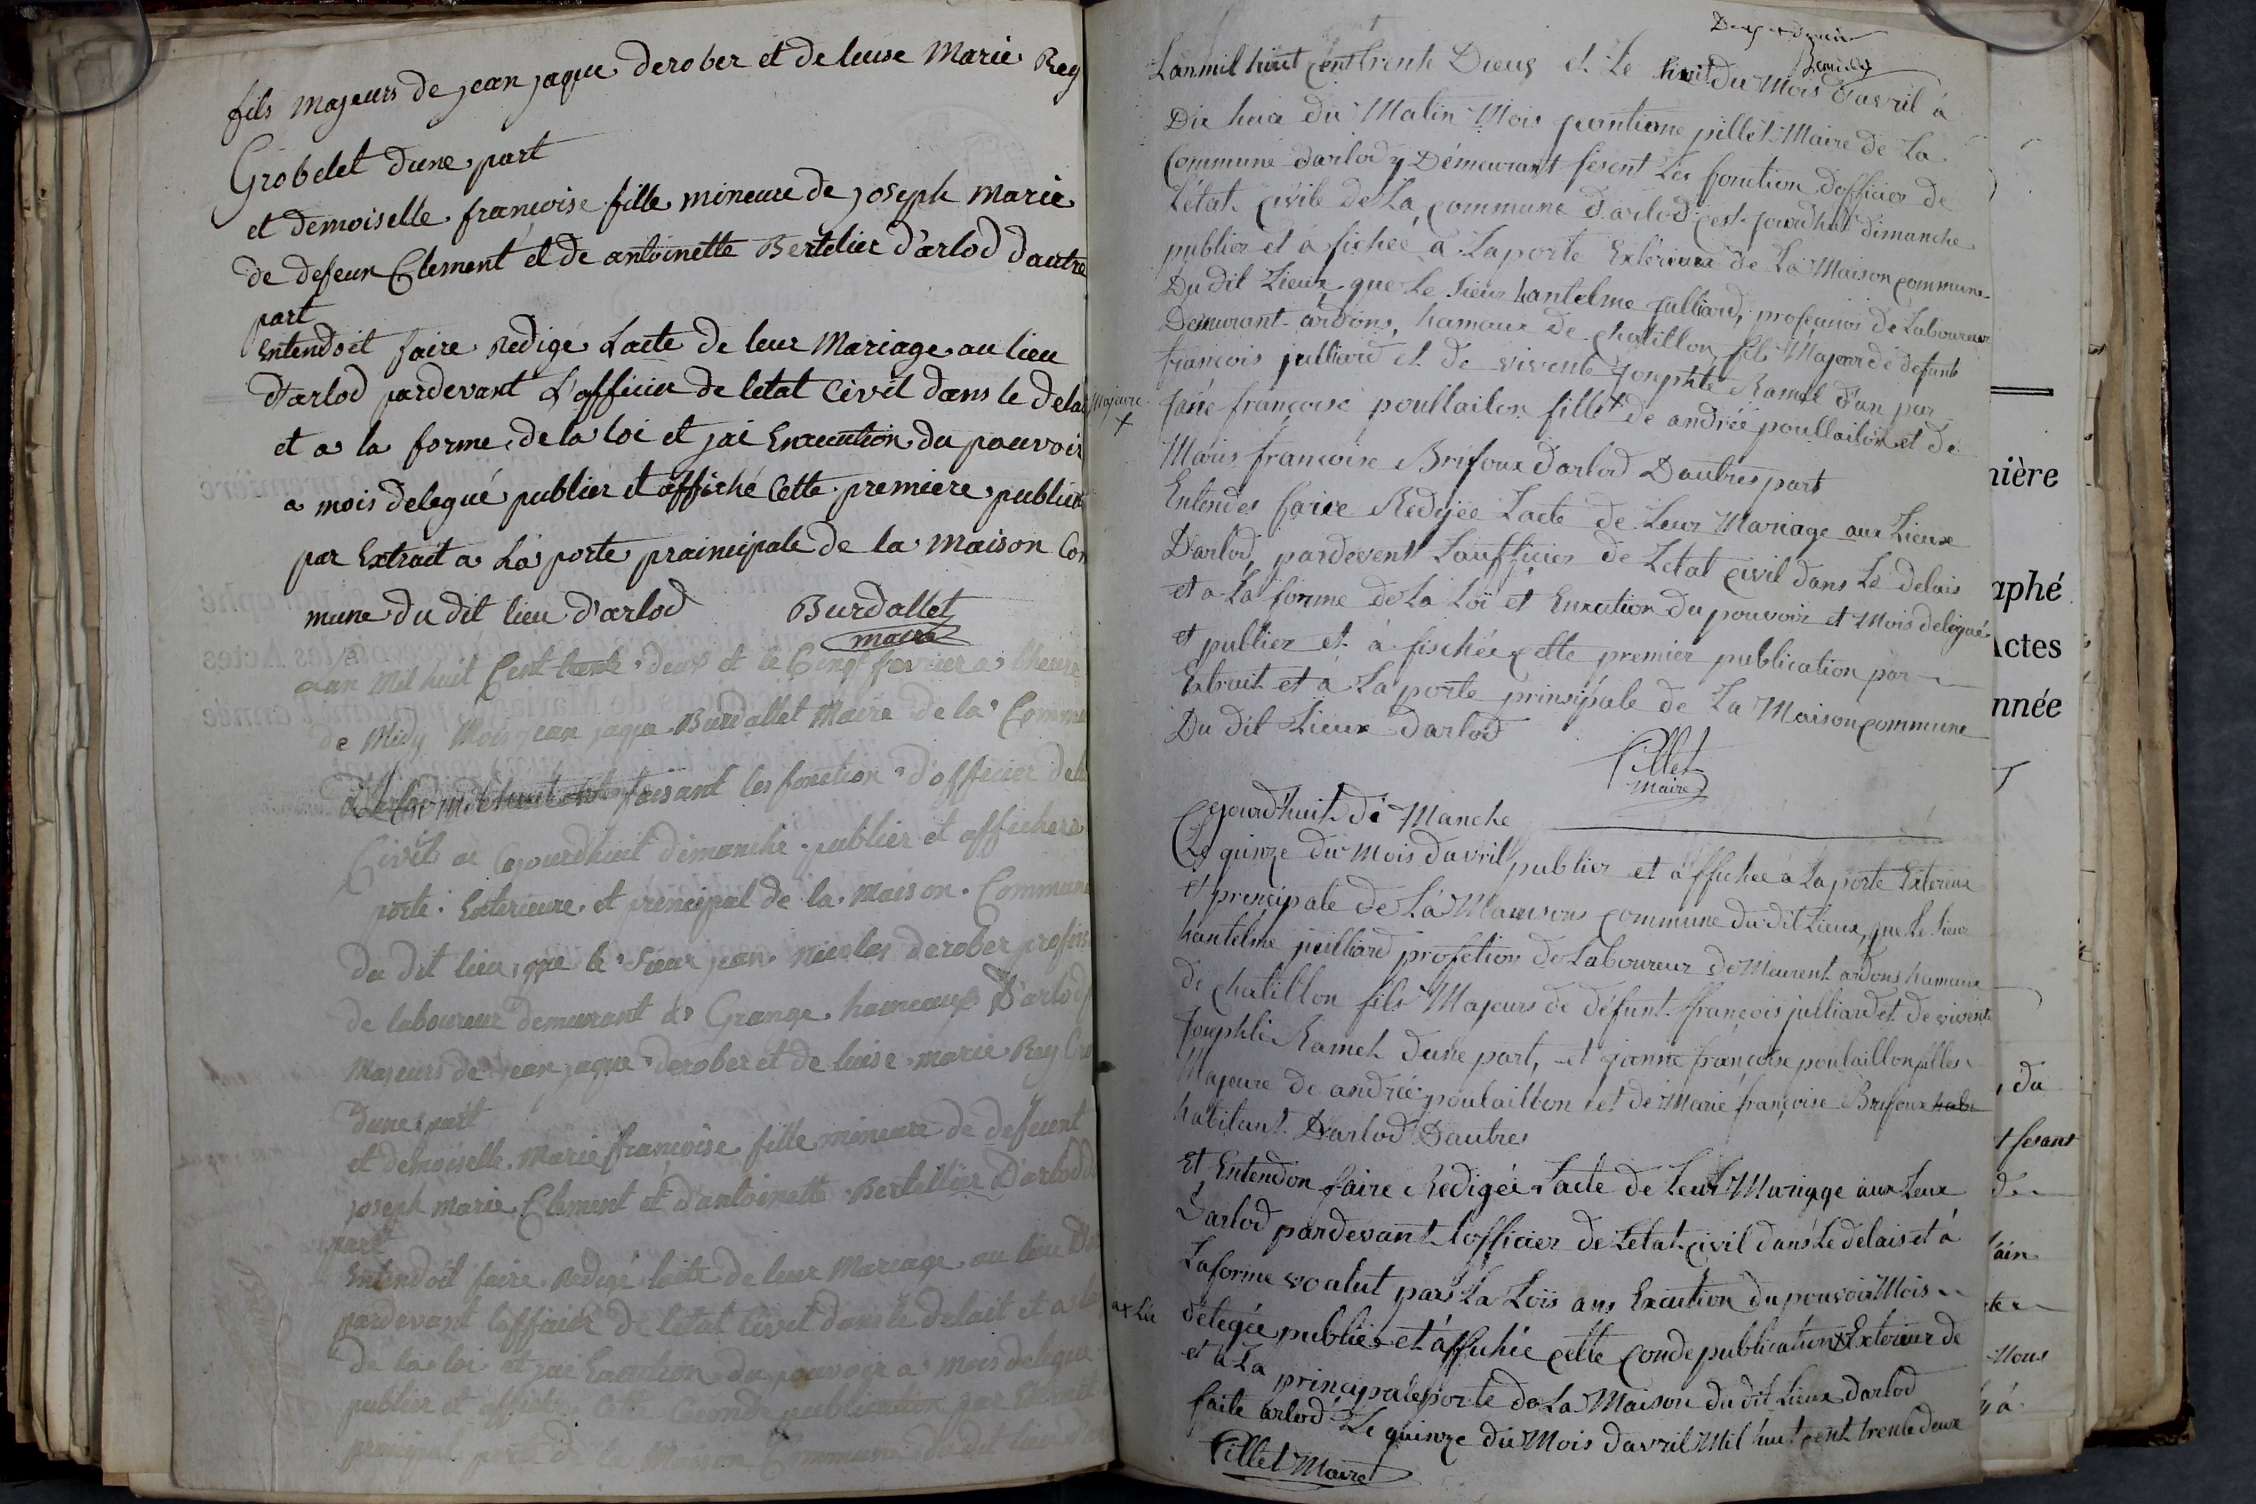 fils majeurs de jean jaque derober et de leuse Marie Rey
Grobelet dune part
et demoiselle françoise fille mineure de joseph Marie
de defeun Clement et de antoinette Bertelier d'arlod dautre
part
Entendoit faire Redigé Lacte de leur Mariage au lieu
d'arlod pardevant L'officier de letat Civil dans le delai
et a la forme de la loi et jai Enxecution du pouvoir
a mois delegué publier et affiché Cette premiere publica
par Extrait a La porte praincipale de la Maison Com
mune du dit lieu d'arlod Burdallet
maire
Lan Mil huit Cent trente deux et le Cinq fevrier a Lheure
de Midy Mois jean jaque Burdallet Maire de la Commu
faisant les fonction d'officier de le
Civil ai Cejourdhuit dimanche publier et afficher a
porte Exterieure et principal de la Maison Commune
du dit lieu que le Sieur jean Nicolas derober profes
de laboureur demeurant a Grange hameaux D'arlod
Majeurs de jean jaque derober et de luise marie Rey Gro
dune part
et demoiselle Marie françoise fille mineure de defeunt
joseph marie Clement et d'antoinette Bertellier D'arlod d
part
Entendoit faire Redigé lacte de leur Mariage au lieu D
pardevant lofficier de letat Civil dans le delait et a la
de la loi et jai Execution du pouvoir a mois delegué
publier et affiché Cette Seconde publication par Extrait
principal porte de la Maison Commune
Lanmil huit Cent trente Deux et Le huit du Mois d'avril à
Dix heure du Matin Mois pontienne pillet Maire de La
Commune darlod y Démeurant fesent Les fonction dofficier de
L'état Civile de La Commune d'arlod cest jourdhuit dimanche
publier et à fichée a Laporte Exterieure de La Maison commune
Du dit Lieux que Le Sieur hantelme julliard, profession de Laboureur
Demeurant ardons, hamaux de chatillon fils Majeur de defunt
françois julliard et de vivente Josephte Ramel d'un par
Majeure
x
Jane françoise poullailon fille x de andrée poullailon et de
Marie françoise Brifoux darlod Dautres part
Entendes faire Redijée Lacte de Leur Mariage aux Lieux
Darlod, pardevent Laufficier de Letat civil dans Le delais
et a La forme de La Loi et Enxcution du pouvoir et Mois delegué
et publier et à fischée cette premier publication par
Extrait et à La porte prinsipale de La Maison commune
Du dit Lieux Darlod
Pillet
Maire
Cejourdhuit di Manche
Le quinze du Mois davril publier et affichee a La porte Exterieux
et principale de La Maisons commune du dit Lieux, que Le Sieur
hantelme juilliard profetion de Laboureur deMeurent ardons hamaux
de chatillon fils Majeurs de défunt françois julliard et de vivente
Josephte Ramel dune part, et jeanne françoise poulaillon filles
Majeure de andrée poulaillon et de Marie françoise Brifoux habi
habitant Darlod Dautres
et Entendon faire Redigée Lacte de Leur Mariage aux Leux
Darlod pardevant Lofficier de Letat civil dans Le delais et à
La forme voalut par La Lois ans Excution du pouvoir Mois
délegée publiée et àffichée cette conde publication x Exterieur de
ax La
et à La principale porte de La Maison du dit Lieux darlod
faite arlod Le quinze du Mois davril Mil huit cent trente deux
Pillet Maire
nière
aphé
Actes
nnée
, du
t fesant
de
ain
Nous